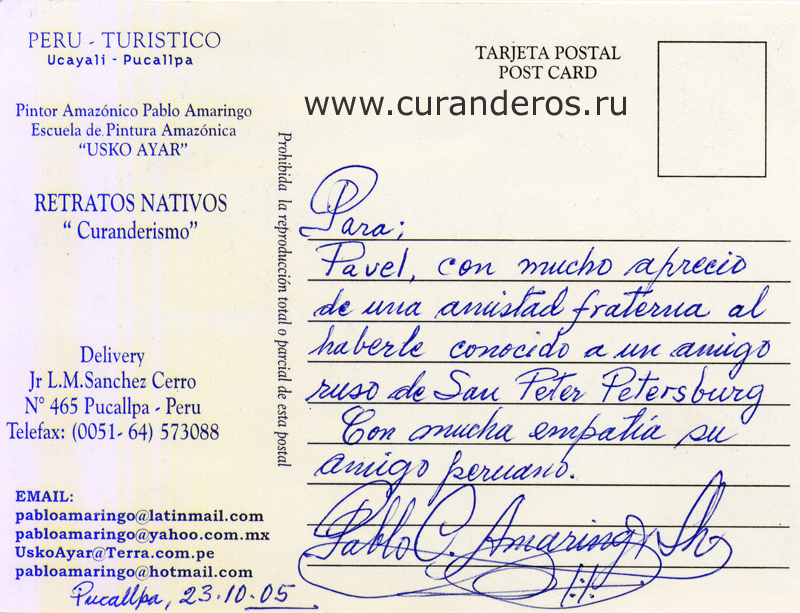 PERU - TURISTICO
Ucayali - Pucallpa
Pintor Amazónico Pablo Amaringo
Escuela de Pintura Amazónica
“USKO AYAR”
RETRATOS NATIVOS
“ Curanderismo”
Delivery
Jr L.M.Sanchez Cerro
N° 465 Pucallpa - Peru
Telefax: (0051- 64) 573088
EMAIL:
pabloamaringo@latinmail.com
pabloamaringo@yahoo.com.mx
UskoAyar@Terra.com.pe
pabloamaringo@hotmail.com
Pucallpa, 23.10.05
Prohibida la reproducción total o parcial de esta postal
TARJETA POSTAL
POST CARD
www.curanderos.ru
Para;
Pavel, con mucho aprecio
de una amistad fraterna al
haberle conocido a un amigo
ruso de San Peter Petersburg
Con mucha empatía su
amigo peruano.
Pablo C. Amaringo Sh